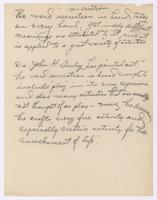 recreation
The word recreation is heard today
on every hand. Yet widely different
meanings are attributed to it and it
is applied to a great variety of activities
Dr. John H. Finley has pointed out
"The word recreation is broad enough to
include play in its every expression
and also many activities that are usually
not thought of as play - music, the drama,
the crafts, every free activity and
especially creative activity for the
enrichment of life."